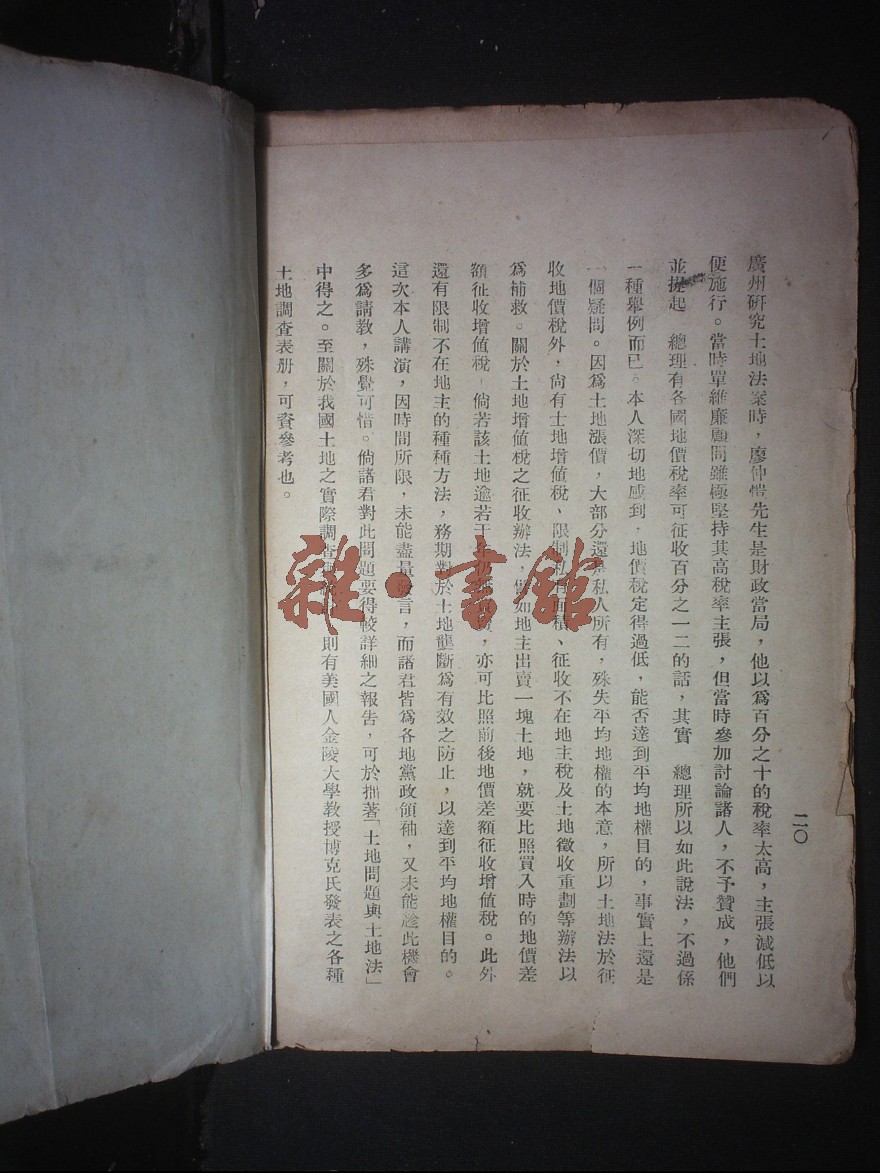 二〇
廣州研究土地法案時，廖仲愷先生是財政當局，他以爲百分之十的稅率太高，主張減低以
便施行。當時單維廉顧問雖極堅持其高稅率主張，但當時參加討論諸人，不予贊成，他們
並提起　總理有各國地價稅率可征收百分之一二的話，其實　總理所以如此說法，不過係
一種舉例而已。本人深切地感到，地價稅定得過低，能否達到平均地權目的，事實上還是
一個疑問。因爲土地漲價，大部分還是私人所有，殊失平均地權的本意，所以土地法於征
收地價稅外，尙有土地增値稅、限制私有面積、征收不在地主稅及土地徵收重劃等辦法以
爲補救。關於土地增値稅之征收辦法，假如地主出賣一塊土地，就要比照買入時的地價差
額征收增値稅，倘若該土地逾若干年仍，亦可比照前後地價差額征收增値稅。此外
還有限制不在地主的種種方法，務期對於土地壟斷爲有效之防止，以達到平均地權目的。
這次本人講演，因時間所限，未能盡量發言，而諸君皆爲各地黨政領袖，又未能趁此機會
多爲請教，殊覺可惜。倘諸君對此問題要得較詳細之報吿，可於拙著「土地問題與土地法」
中得之。至關於我國土地之實際調查，則有美國人金陵大學敎授博克氏發表之各種
土地調查表册，可資參考也。
雜·書館